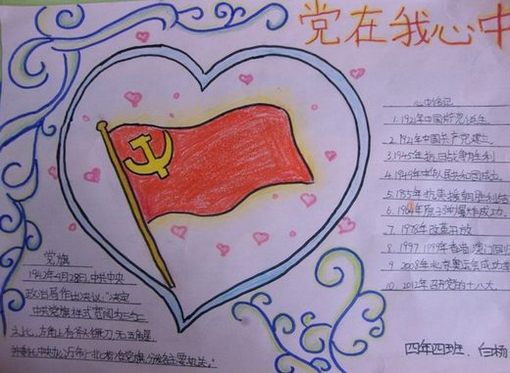 党在我心中
心中传记
1. 1921年中国共产党诞生
2. 1921年中国共产党建立。
3. 1945年抗日战争胜利
4. 1949年中华人民共和国成立
5. 1953年抗美援朝胜利结
6. 1964年原子弹爆炸成功。
7. 1978年改革开放
8. 1997 1999年香港 澳门回归
9. 2008年北京奥运会成功举
10. 2012年召开党的十八大。
四年四班. 白杨
党旗
1942年4月28日,中共中央
政治局作出决议:"决定
中共党旗样式宽阔为三与二
之比,左角上有斧头镰刀,无五角星,
委托中央办公厅制一批标准党旗,分发各主要机关。"